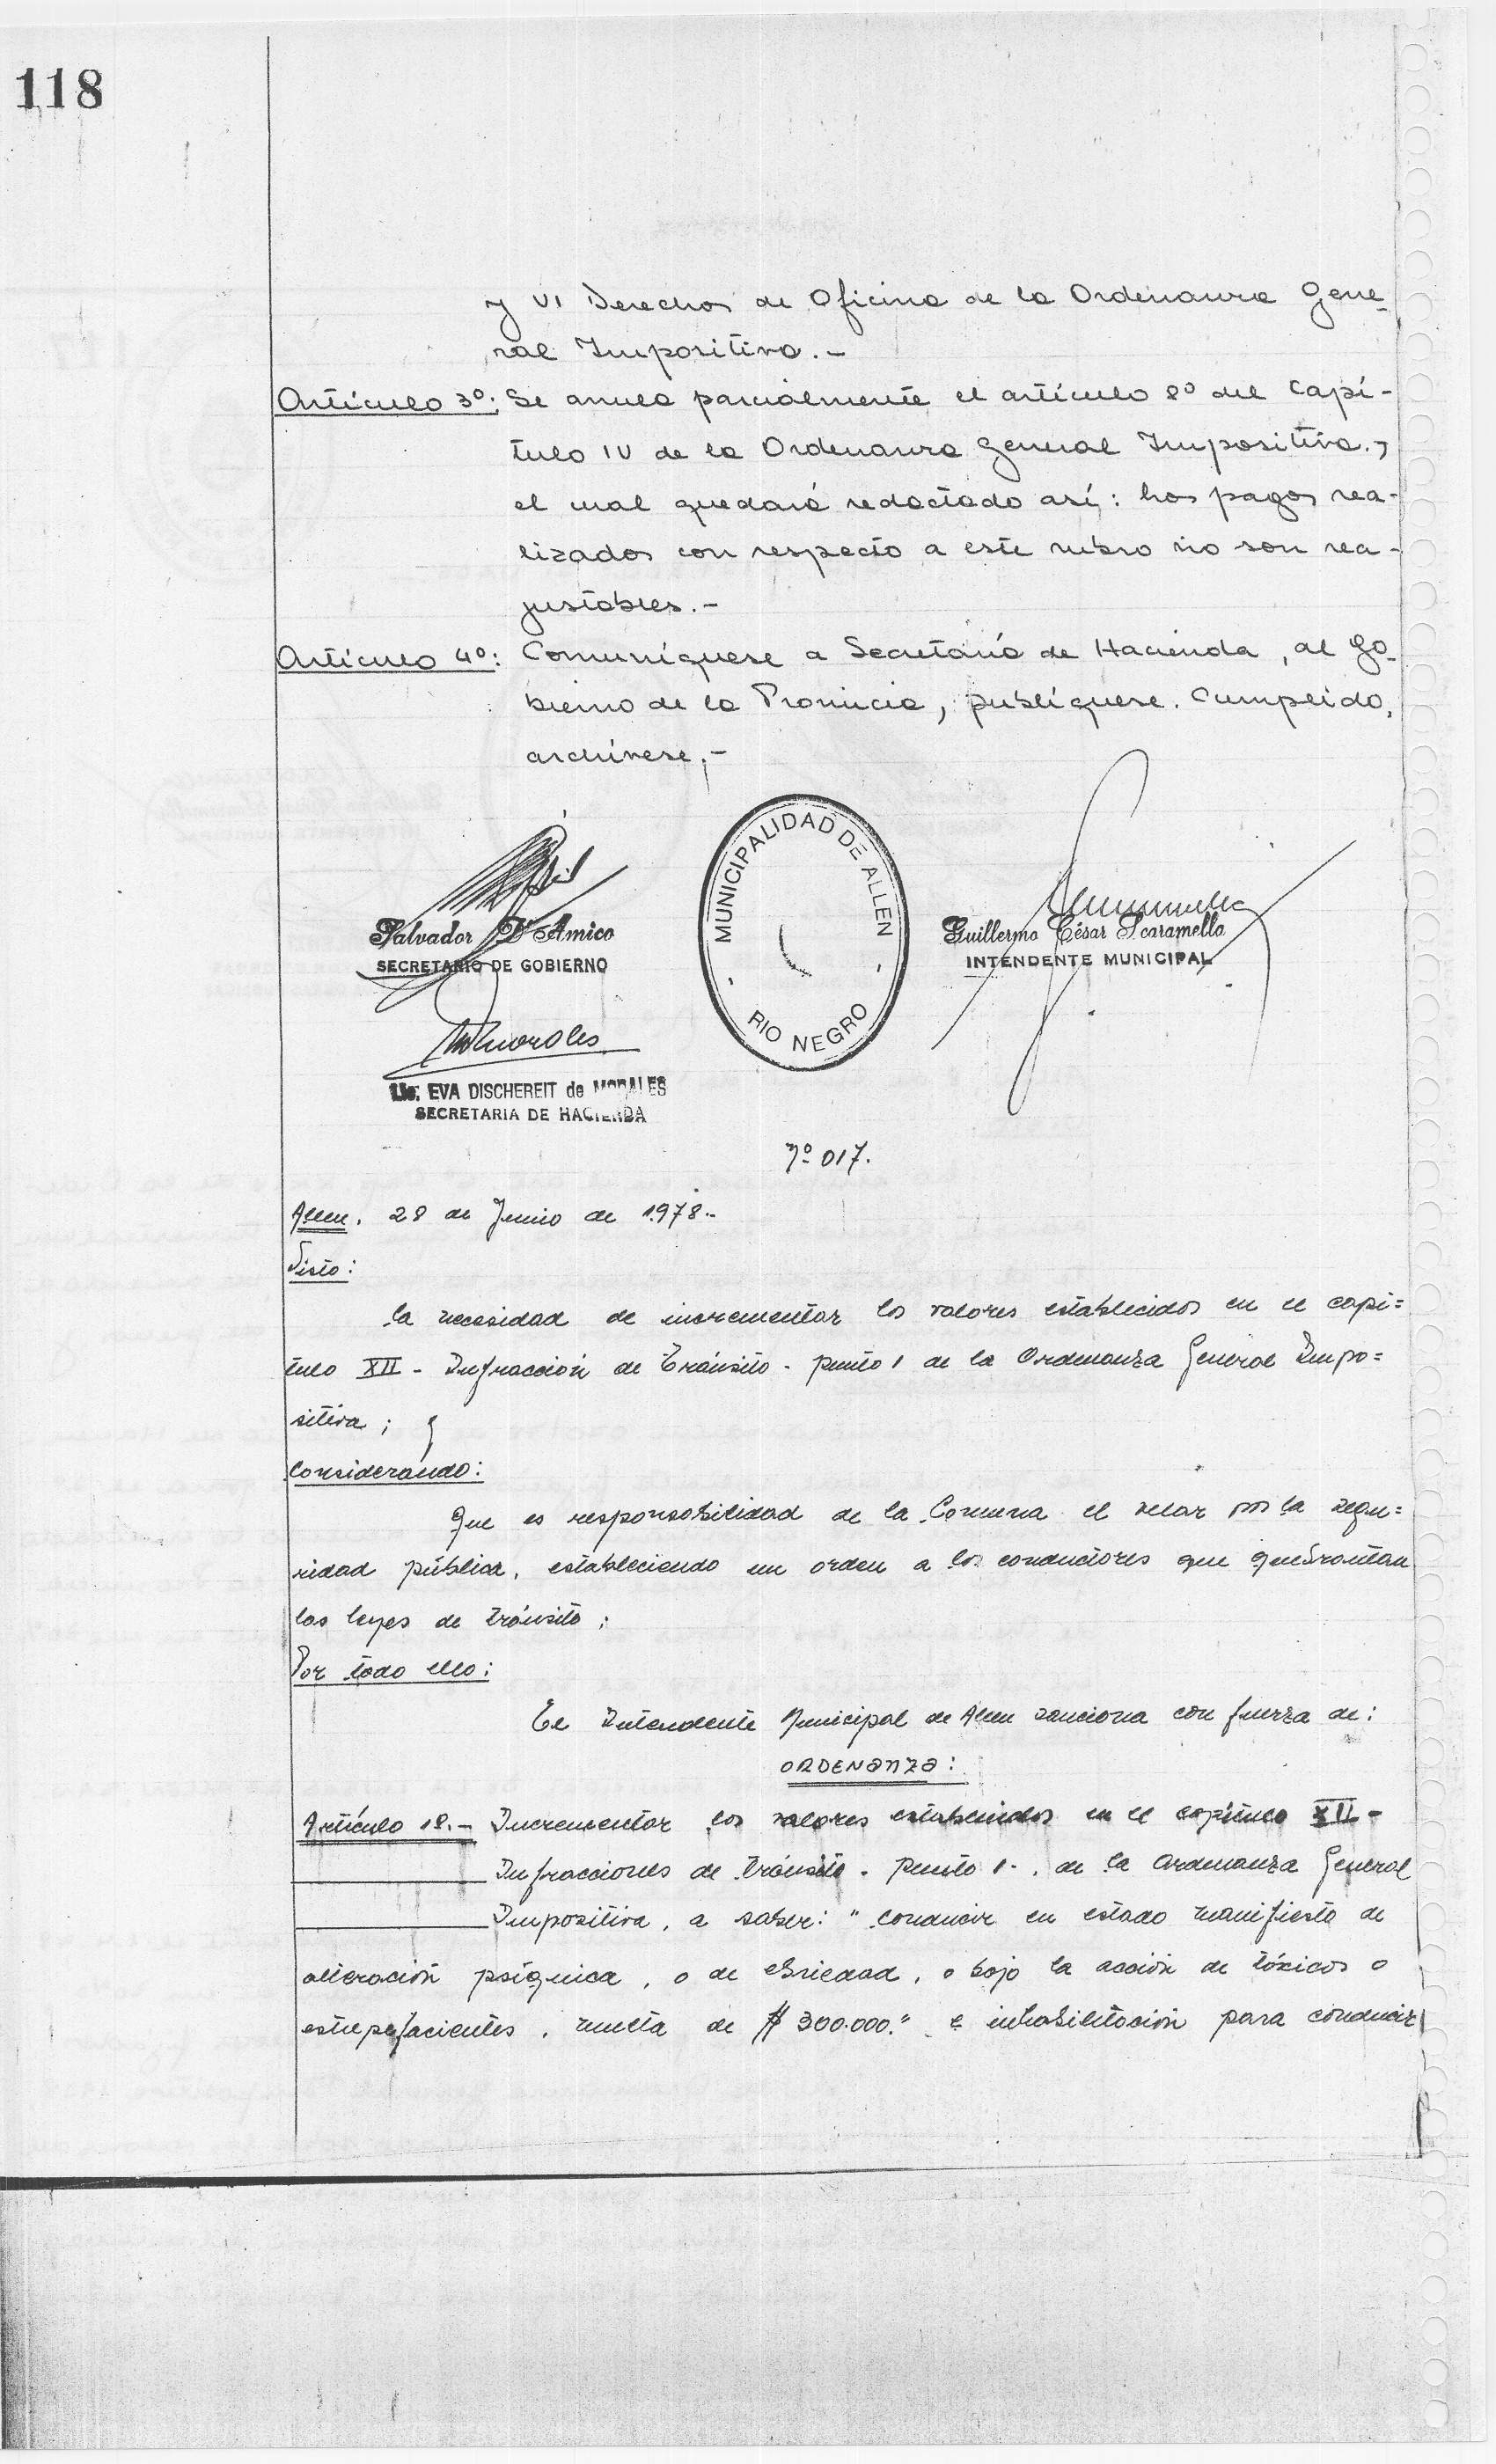 118
y VI Derechos de Oficina de la Ordenanza Gene-
ral Impositiva.-
Artículo 3º: Se anula parcialmente el artículo 8º del Capí-
tulo IV de la Ordenanza General Impositiva.,
el cual quedará redactado así: Los pagos rea-
lizados con respecto a este rubro no son rea-
justables.-
Artículo 4º: Comuníquese a Secretaría de Hacienda, al Go-
bierno de la Provincia, publíquese. Cumplido,
archívese.-
MUNICIPALIDAD DE ALLEN
- RIO NEGRO -
Salvador D'Amico
SECRETARIO DE GOBIERNO
Guillermo César Scaramella
INTENDENTE MUNICIPAL
Lic. EVA DISCHEREIT de MORALES
SECRETARIA DE HACIENDA
Nº 017.
Allen, 28 de Junio de 1978.-
Visto:
la necesidad de incrementar los valores establecidos en el capí=
tulo XII - Infracción de Tránsito - punto 1 de la Ordenanza General Impo=
sitiva; y
Considerando:
Que es responsabilidad de la Comuna el velar por la segu=
ridad pública, estableciendo un orden a los conductores que quebrantan
las leyes de tránsito;
Por todo ello:
El Intendente Municipal de Allen sanciona con fuerza de:
ORDENANZA:
Artículo 1º.- Incrementar los valores establecidos en el capítulo XII -
Infracciones de tránsito - punto 1-, de la Ordenanza General
Impositiva, a saber: "conducir en estado manifiesto de
alteración psíquica, o de ebriedad, o bajo la acción de tóxicos o
estupefacientes, multa de $ 300.000." e inhabilitación para conducir